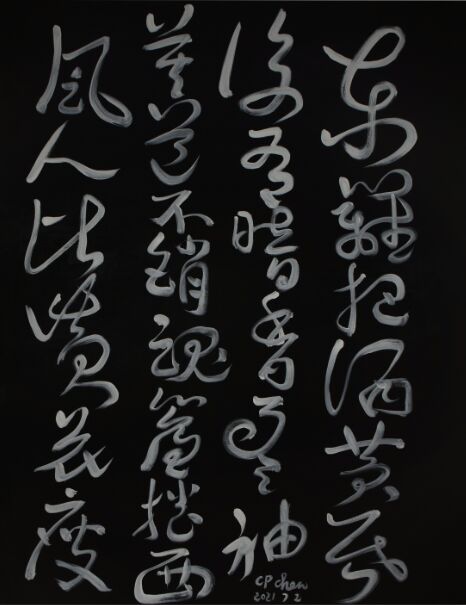 東籬把酒黃昏
後有暗香盈袖
莫道不銷魂簾捲西
風人比黃花瘦
CP Chen
2021 7 2